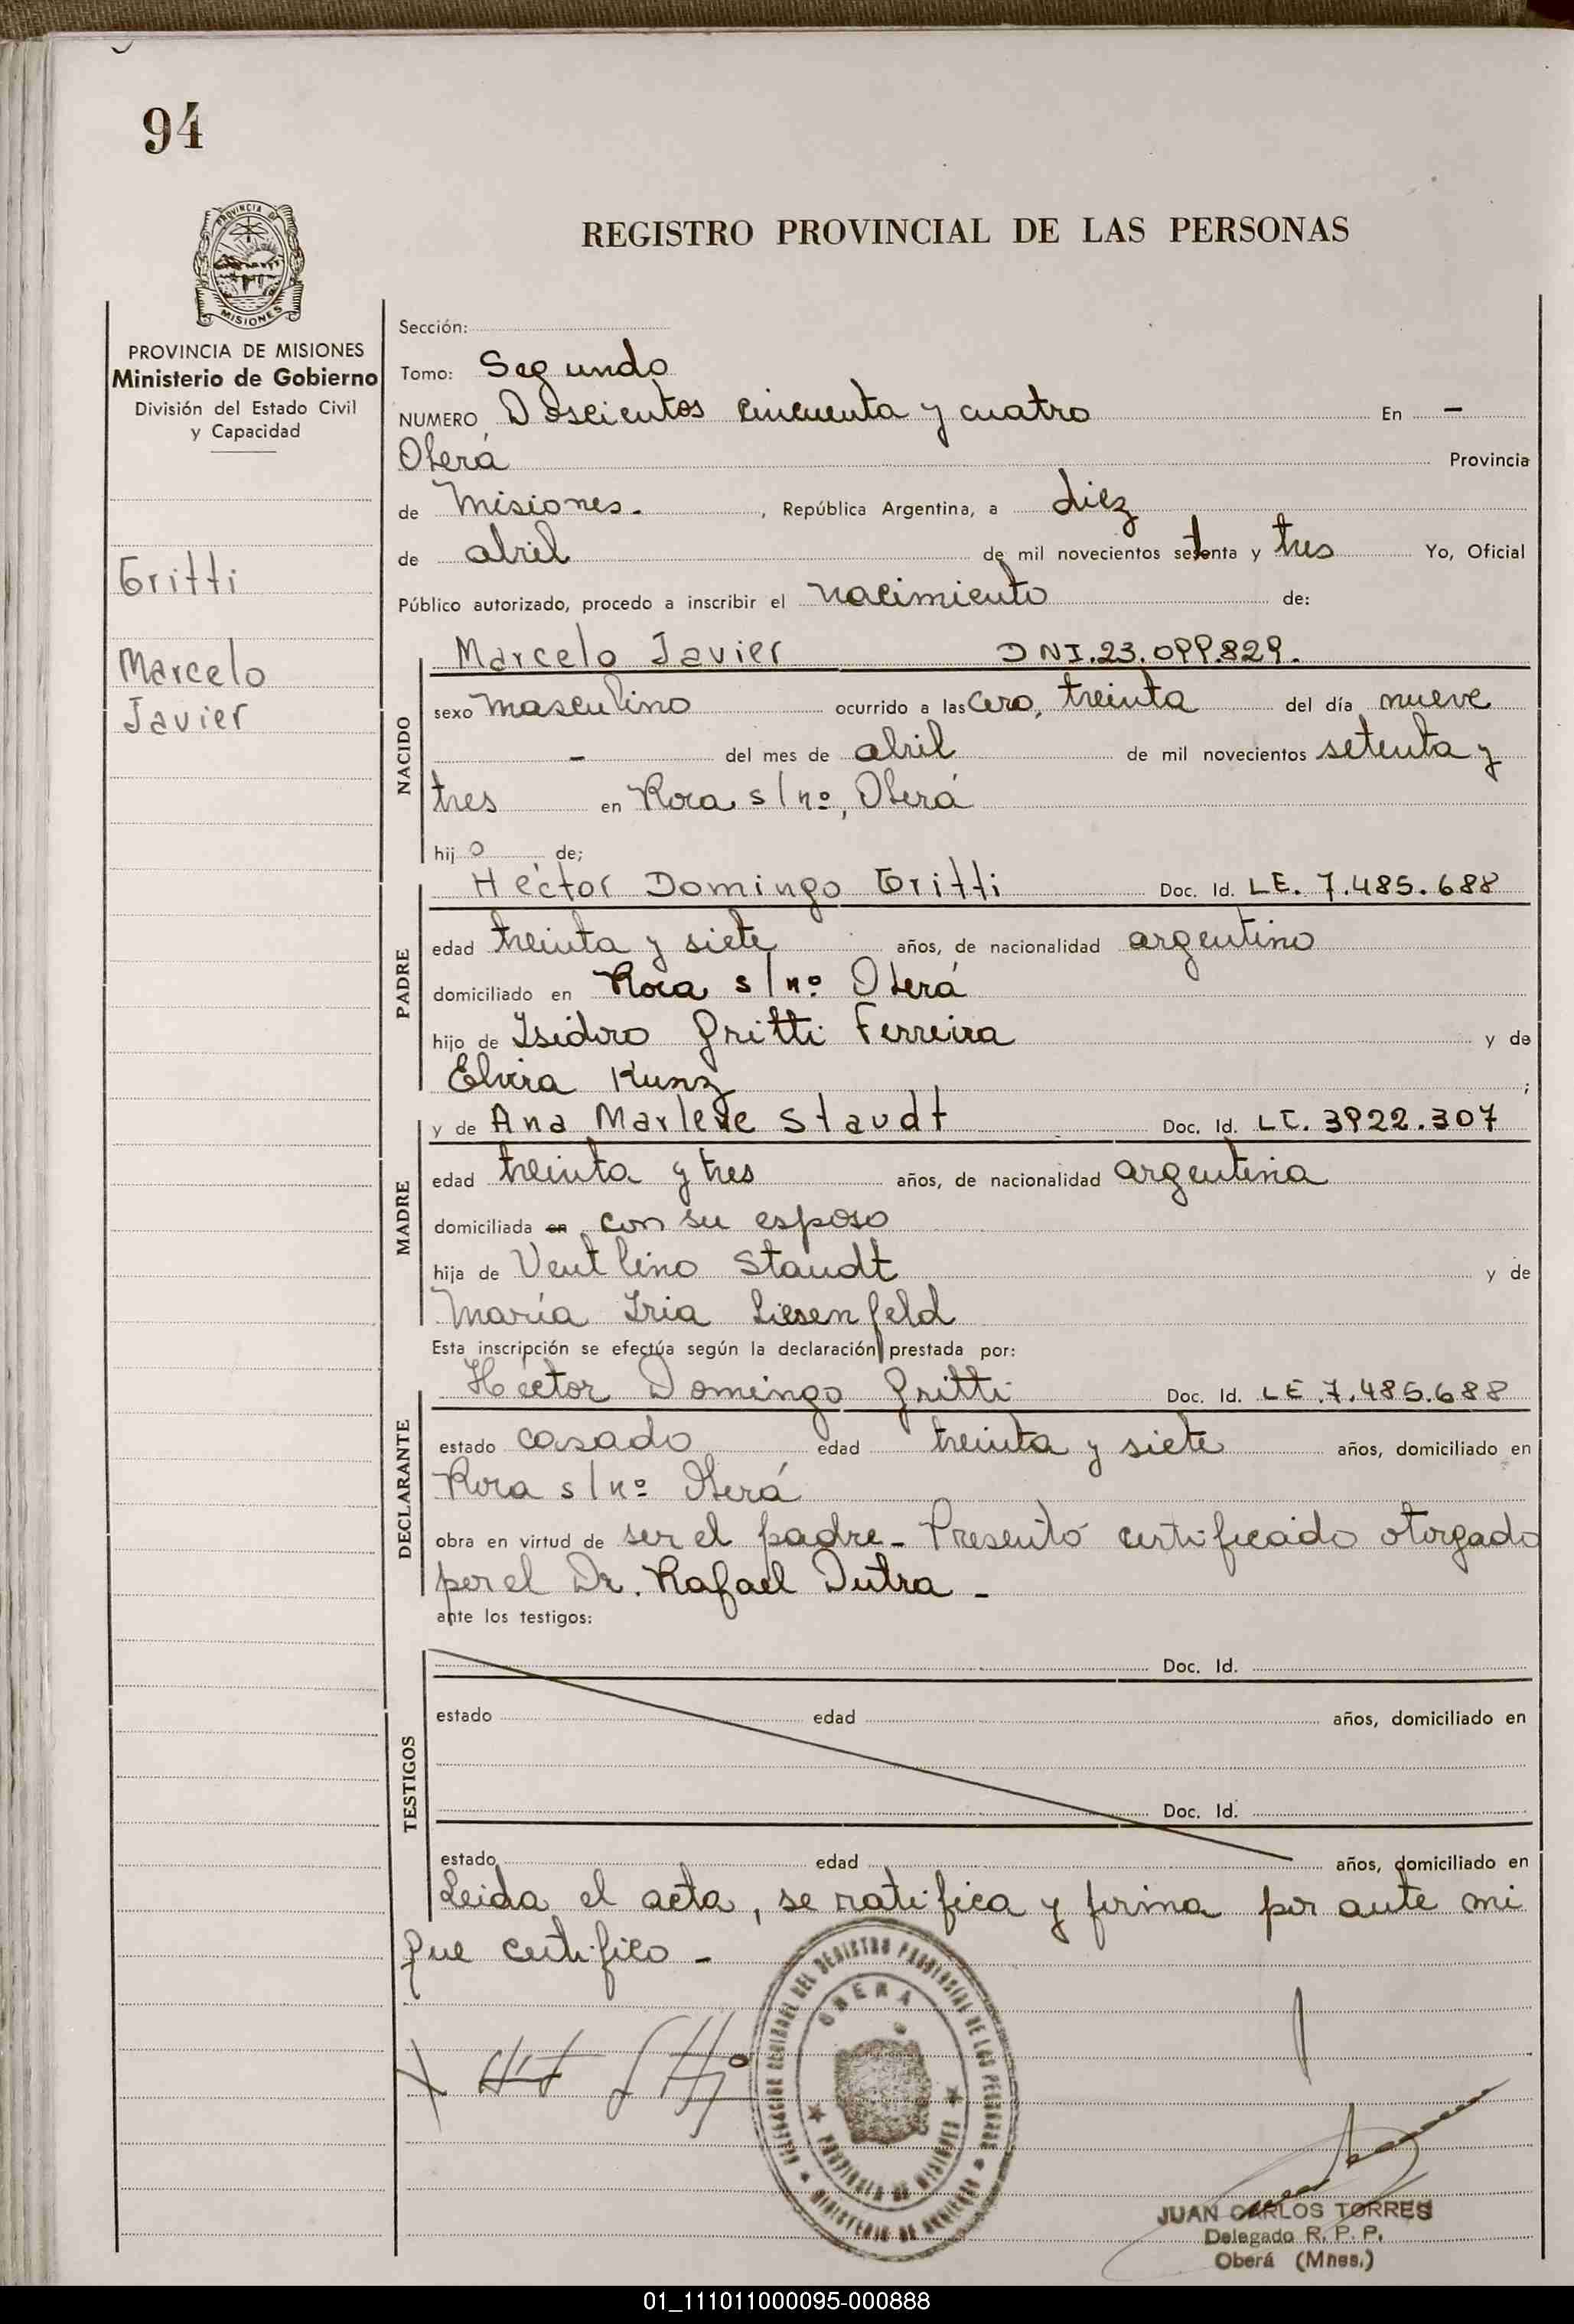 94
PROVINCIA DE
MISIONES
REGISTRO PROVINCIAL DE LAS PERSONAS
PROVINCIA DE MISIONES
Ministerio de Gobierno
División del Estado Civil
y Capacidad
Gritti
Marcelo
Javier
Sección:
Tomo: Segundo
NUMERO Doscientos cincuenta y cuatro En -
Oberá Provincia
de Misiones. , República Argentina, a diez
de abril de mil novecientos setenta y tres Yo, Oficial
Público autorizado, procedo a inscribir el nacimiento de:
Marcelo Javier DNI.23.099.829.
NACIDO
sexo masculino ocurrido a las cero, treinta del día nueve
- del mes de abril de mil novecientos setenta y
tres en Roca s/nº, Oberá
hijo de;
PADRE
Héctor Domingo Gritti Doc. Id. LE. 7.485.688
edad treinta y siete años, de nacionalidad argentino
domiciliado en Roca s/nº Oberá
hijo de Isidoro Gritti Ferreira y de
Elvira Kunz ;
MADRE
y de Ana Marlene Staudt Doc. Id. LC. 3922.307
edad treinta y tres años, de nacionalidad argentina
domiciliada en con su esposo
hija de Ventlino Staudt y de
María Iria Liesenfeld
Esta inscripción se efectúa según la declaración prestada por:
DECLARANTE
Héctor Domingo Gritti Doc. Id. LE.7.485.688
estado casado edad treinta y siete años, domiciliado en
Roca s/nº Oberá
obra en virtud de ser el padre - Presentó certificado otorgado
por el Dr. Rafael Dutra -
ante los testigos:
TESTIGOS
Doc. Id.
estado edad años, domiciliado en
Doc. Id.
estado edad años, domiciliado en
Leida el acta, se ratifica y firma por ante mi
que certifico -
DELEGACION REGIONAL DEL REGISTRO PROVINCIAL DE LAS PERSONAS
OBERA
PROVINCIA DE MISIONES
MINISTERIO DE GOBIERNO
JUAN CARLOS TORRES
Delegado R. P. P.
Oberá (Mnes.)
01_111011000095-000888